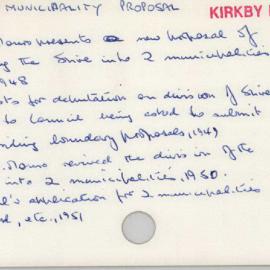 MUNICIPALITY PROPOSAL
KIRKBY
presents a new proposal of
the Shire into 2 municipalities
948
for deputation on division of Shire
to Council being asked to submit
boundary proposals, 1949
revived the division of the
into 2 municipalities, 1950.
's application for 2 municipalities
etc., 1951